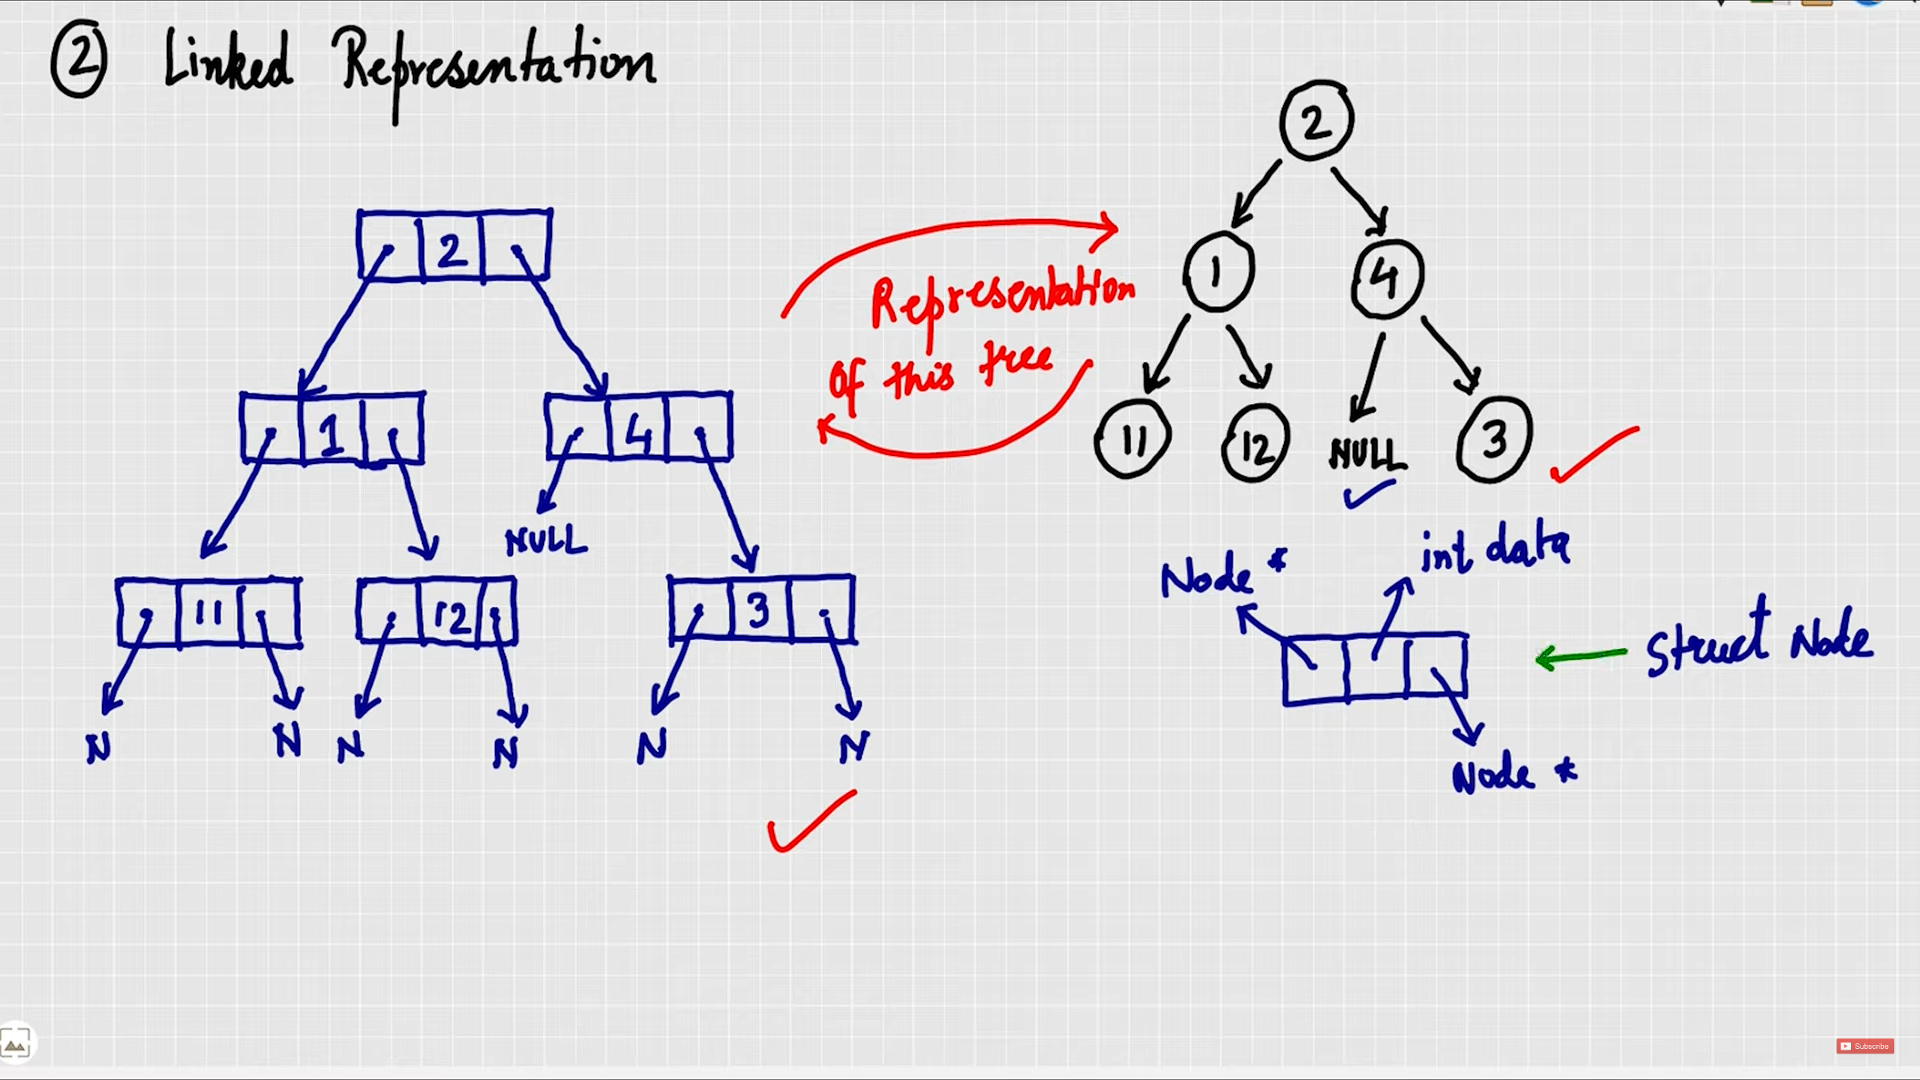 ② Linked Representation
2
1 4
NULL
11 12 3
N N N N N N
Representation
Of this tree
2
1 4
11 12 NULL 3
Node *
int data
Struct Node
Node *
Subscribe